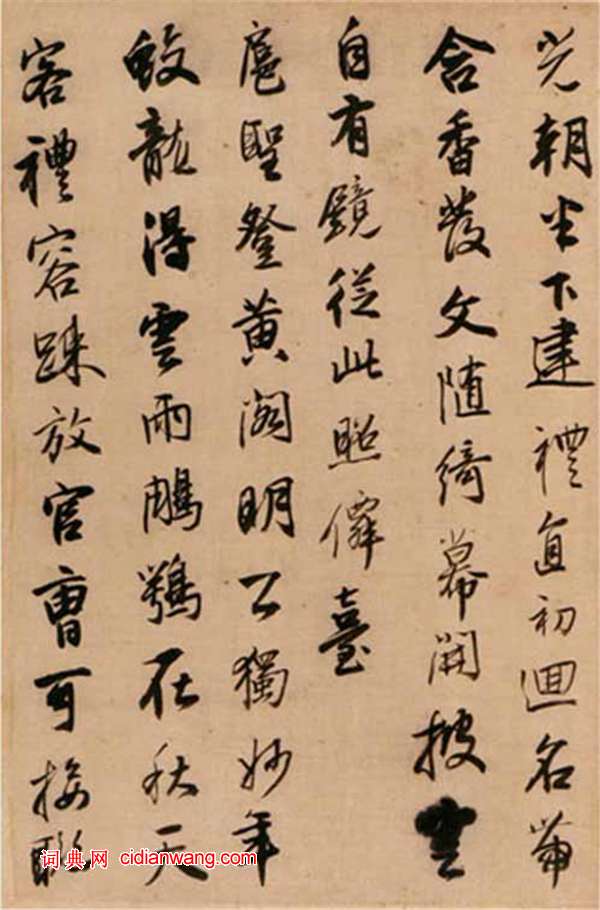 光朝半下建禮直初迴名帶
含香發文随綺幕開披雲
自有鏡從此照僊臺
扈聖登黄閣明公獨妙年
蛟龍得雲雨鵰鶚在秋天
客禮容踈放官曹可接聯
词典网 cidianwang.com